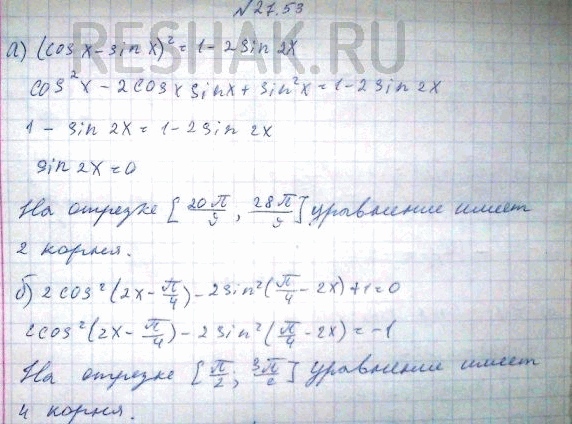 №27.53
RESHAK.RU
а) (cos x - sin x)² = 1 - 2 sin 2x
cos²x - 2cosx sinx + sin²x = 1 - 2 sin 2x
1 - sin 2x = 1 - 2 sin 2x
sin 2x = 0
На отрезке [20π/9, 28π/9] уравнение имеет
2 корня.
б) 2cos²(2x - π/4) - 2sin²(π/4 - 2x) + 1 = 0
2cos²(2x - π/4) - 2 sin²(π/4 - 2x) = -1
На отрезке [π/2; 3π/2] уравнение имеет
4 корня.